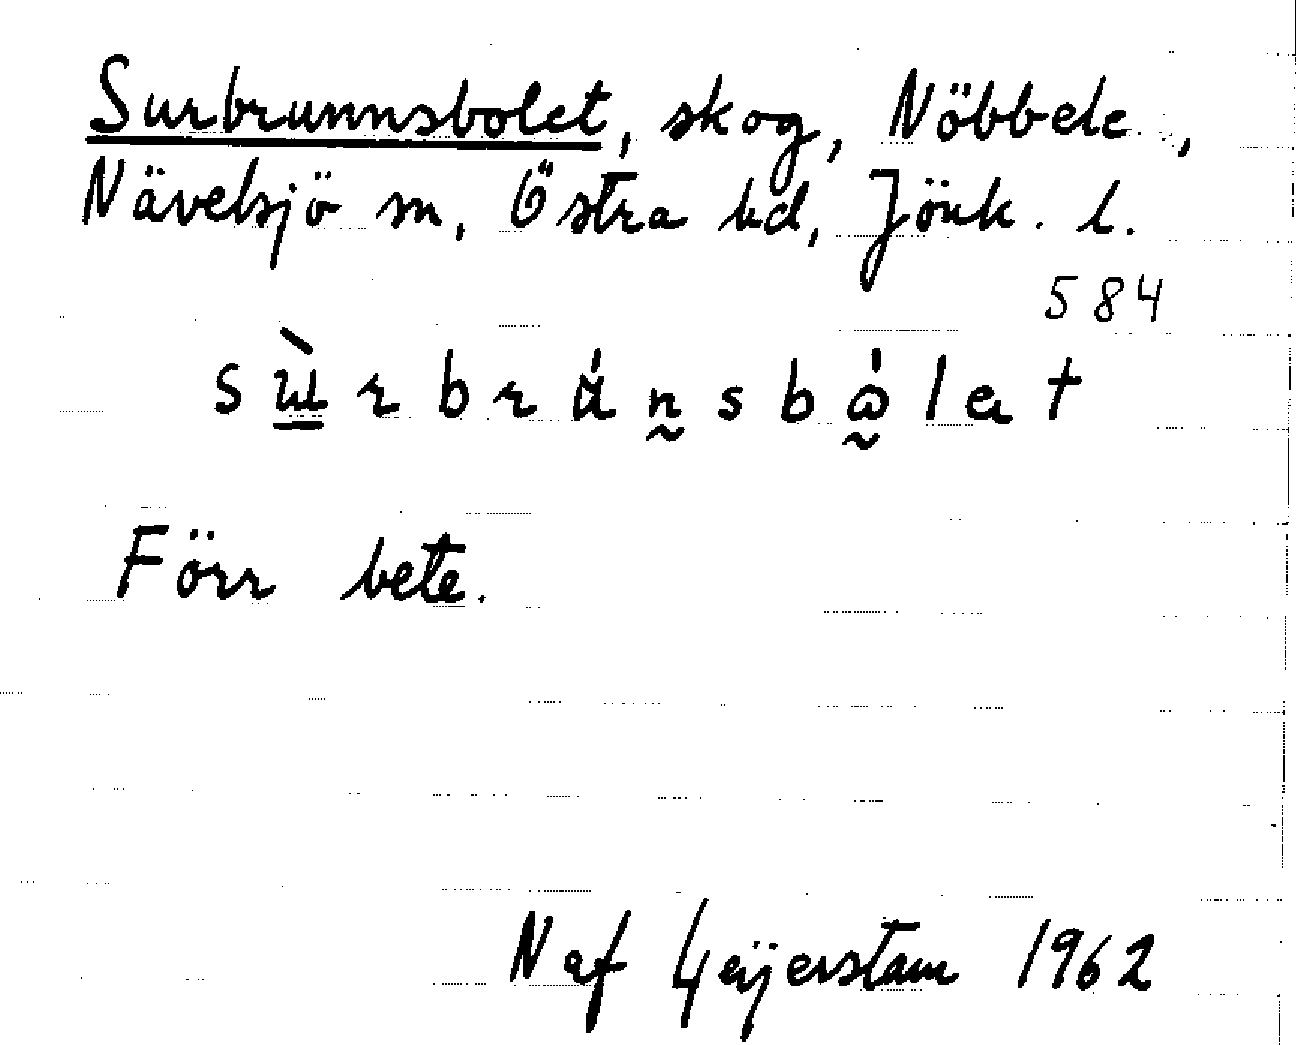 Surbrunnsbolet, skog, Nöbbele,
Nävelsjö sn, Östra hd, Jönk. l.
584
Förr bete.
N af Geijerstam 1962